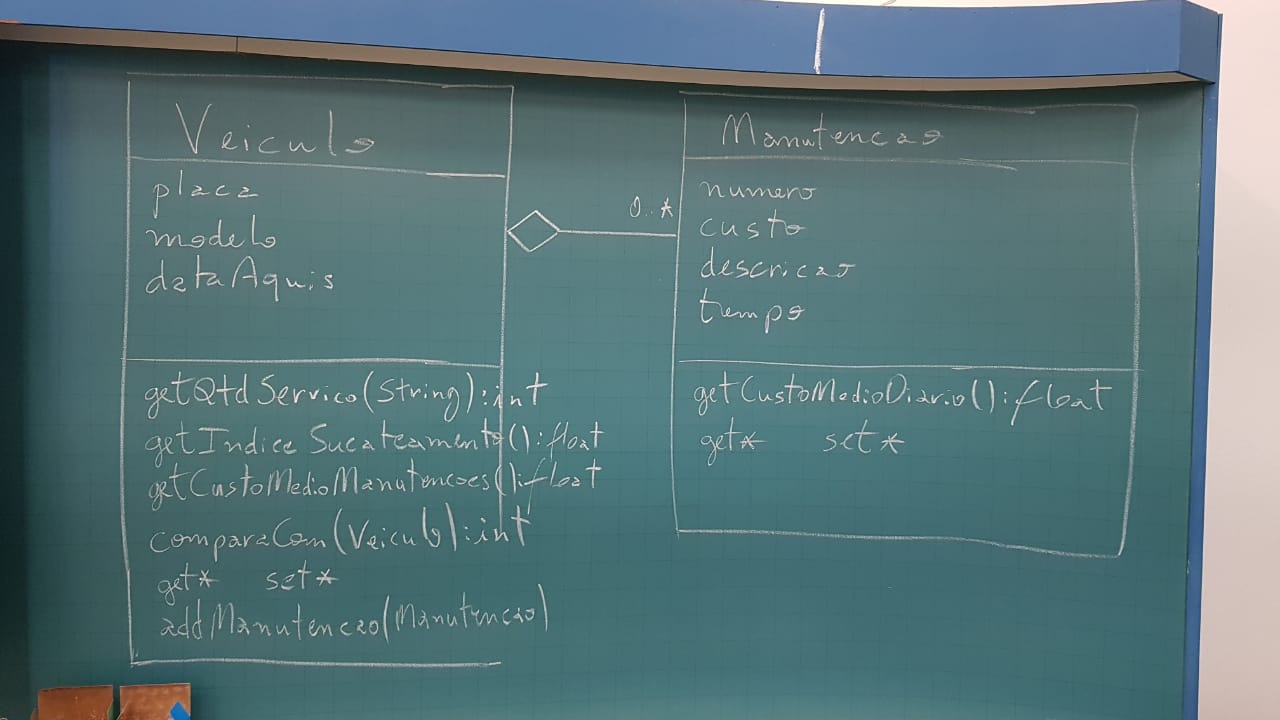 Veiculo
placa
modelo
dataAquis
getQtdServico(String):int
getIndiceSucateamento():float
getCustoMedioManutencoes():float
comparaCom(Veiculo):int
get* set*
addManutencao(Manutencao)
0..*
Manutencao
numero
custo
descricao
tempo
getCustoMedioDiario():float
get* set*